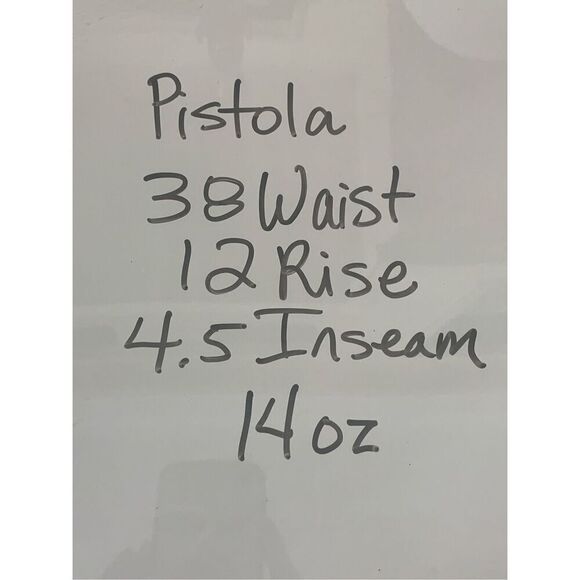 Pistola
38 Waist
12 Rise
4.5 Inseam
14 oz